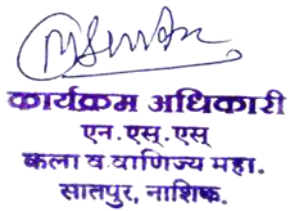 कार्यक्रम अधिकारी
एन.एस्.एस्
कला व वाणिज्य महा.
सातपुर, नाशिक.